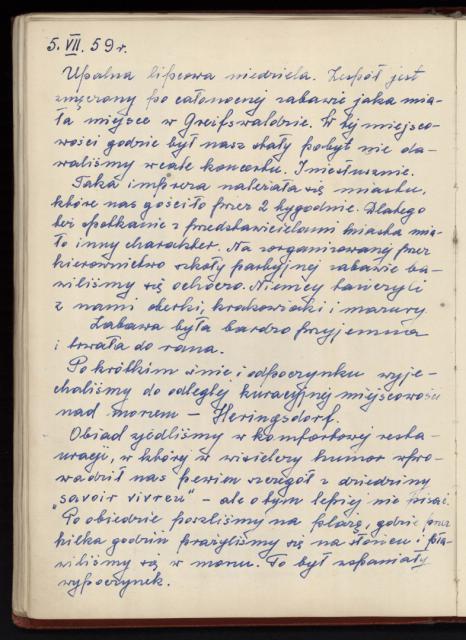 5. VII. 59 r.
Upalna lipcowa niedziela. Zespół jest
zmęczony po całonocnej zabawie jaka mia-
ła miejsce w Greifswaldzie. W tej miejsco-
wości godzie był nasz stały pobyt nie da-
waliśmy wcale koncertu. I niesłusznie.
Taka impreza należała się miastu,
które nas gościło przez 2 tygodnie. Dlatego
też spotkanie z przedstawicielami miasta mia-
ło inny charakter. Na zorganizowanej przez
kierownictwo szkoły partyjnej zabawie ba-
wiliśmy się ochoczo. Niemcy tańczyli
z nami oberki, krakowiaki i mazury.
Zabawa była bardzo przyjemna
i trwała do rana.
Po krótkim śnie i odpoczynku wyje-
chaliśmy do odległej kuracyjnej miejscowości
nad morzem – Heringsdorf.
Obiad zjedliśmy w komfortowej resta-
uracji, w której w wisielczy humor wpro-
wadził nas pewien szczegół z dziedziny
"savoir vivreu" – ale o tym lepiej nie pisać.
Po obiedzie poszliśmy na plażę, gdzie przez
kilka godzin prażyliśmy się na słońcu i pła-
wiliśmy się w morzu. To był wspaniały
wypoczynek.